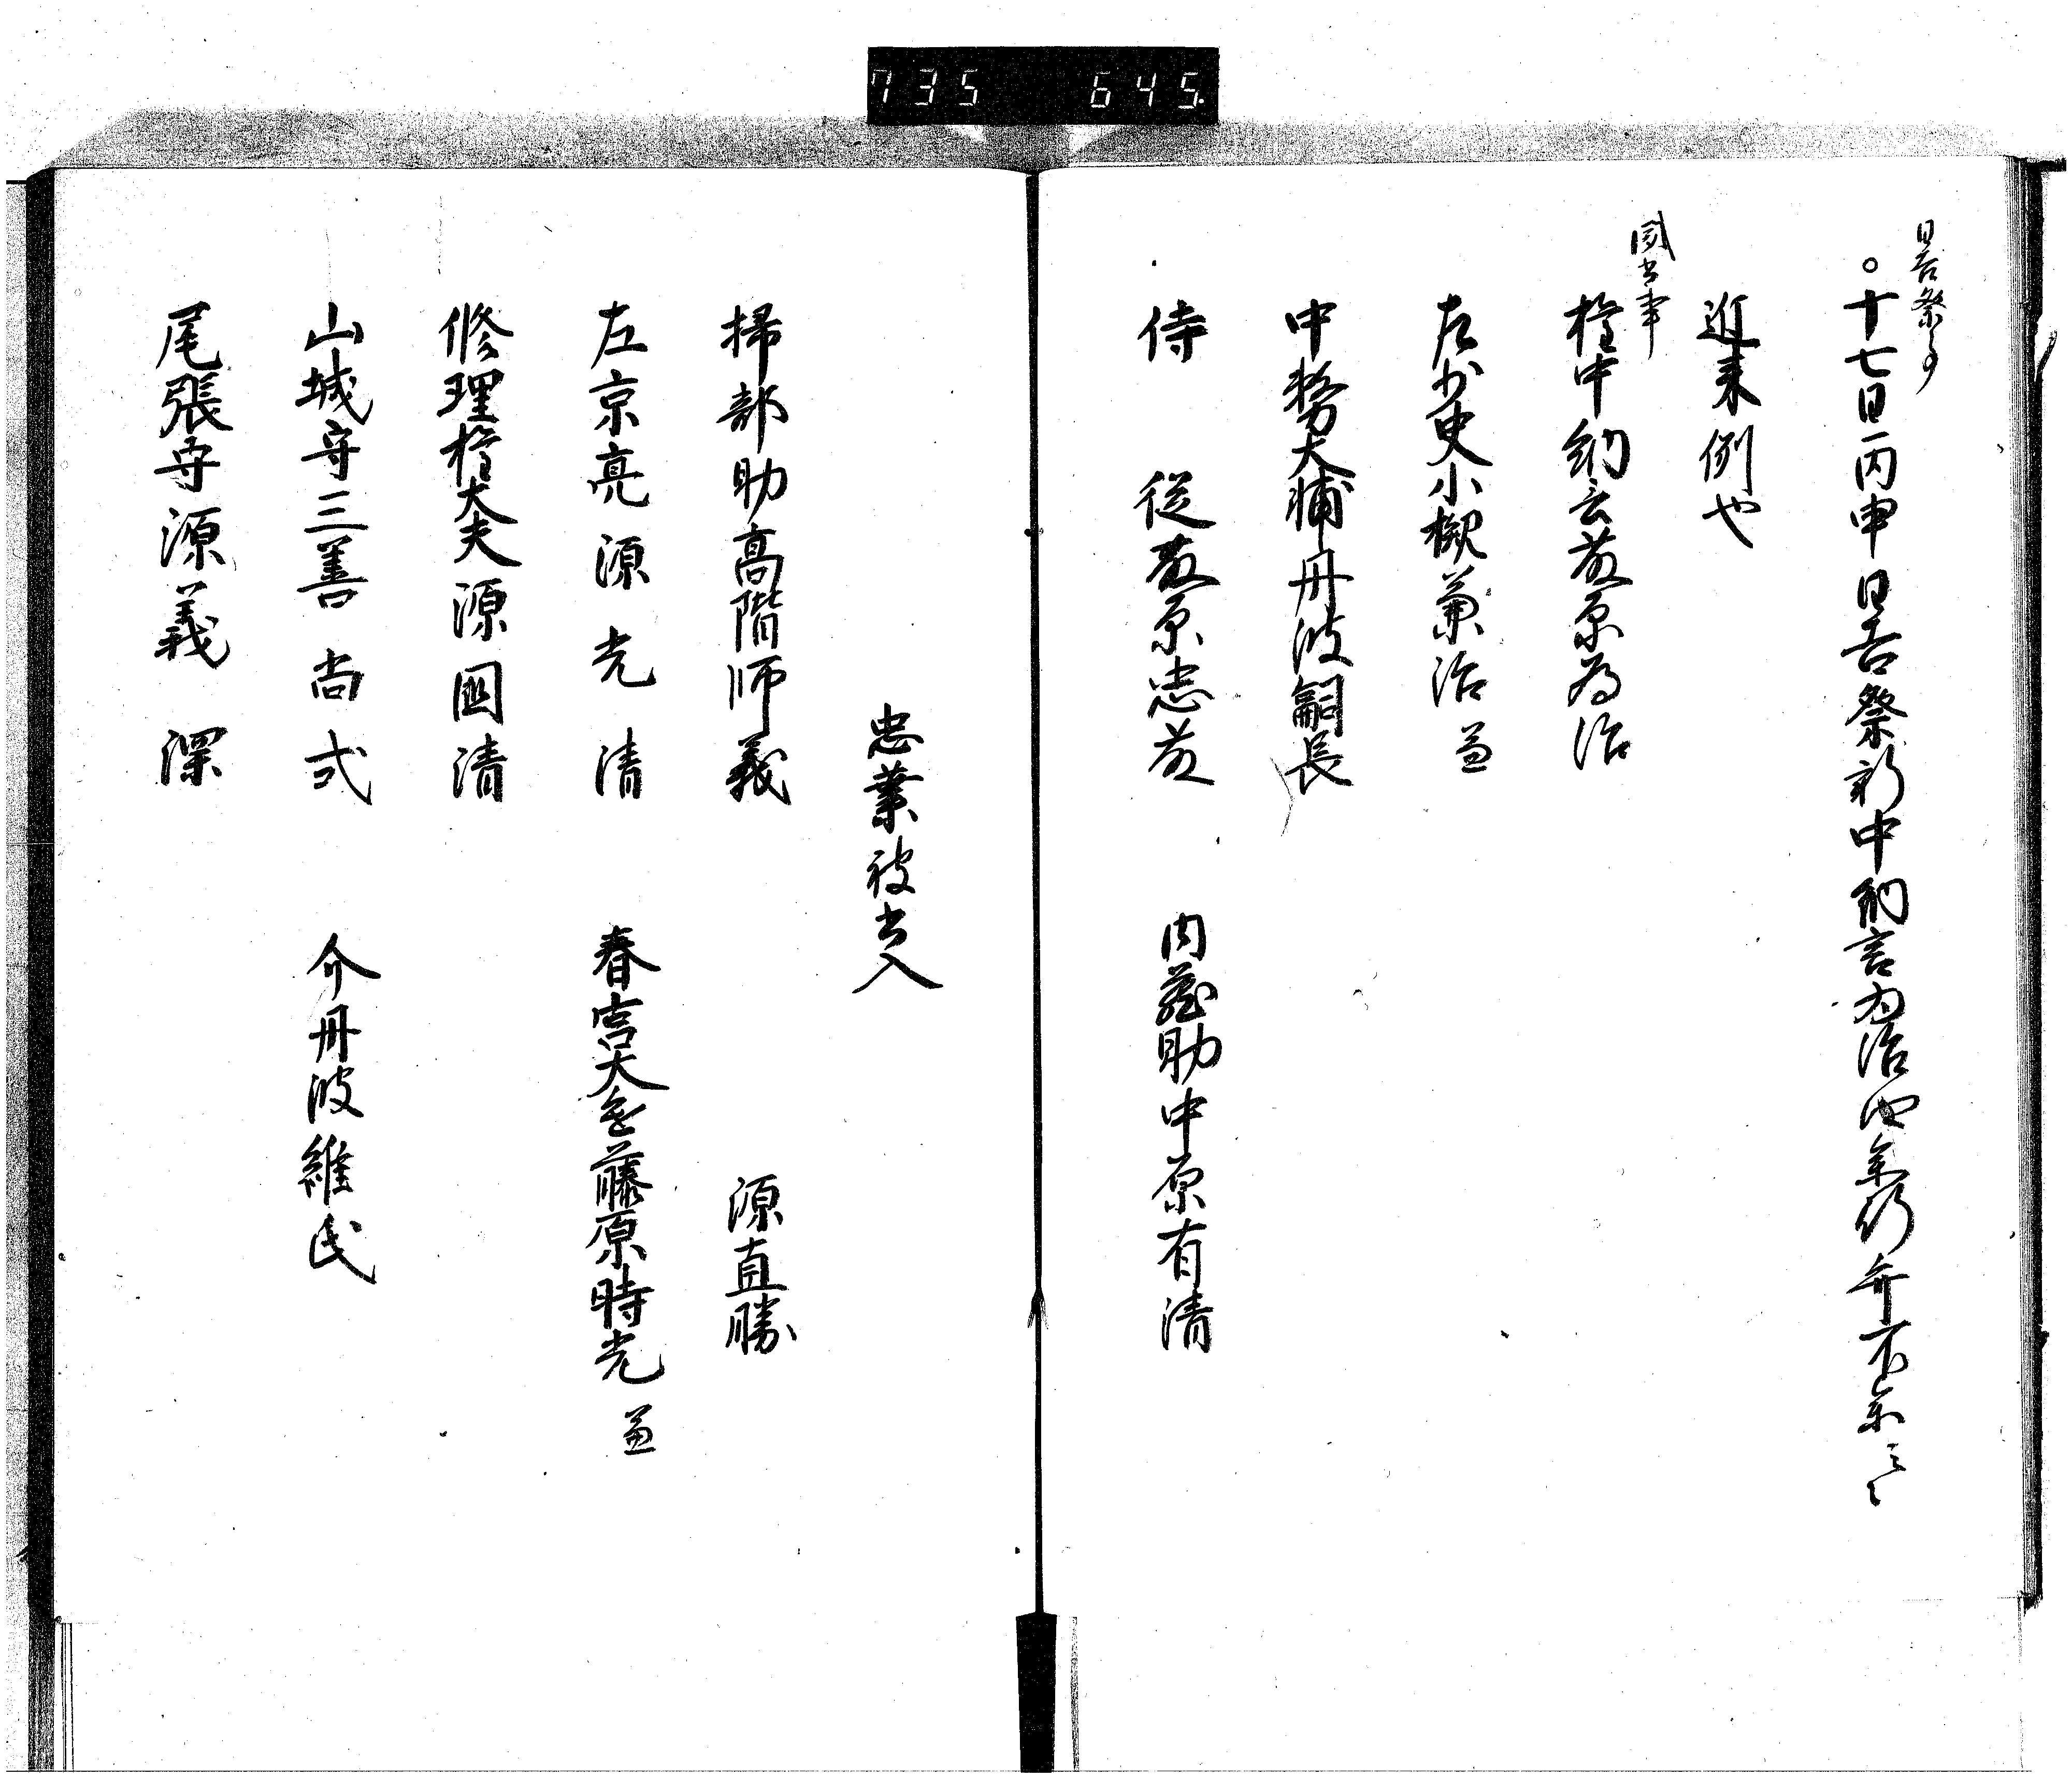 735 645.
日吉祭事
○十七日丙申日吉祭新中納言為治也参行弁不参云々
近来例也
国書事
権中納言藤原為治
左少史小槻兼治兼
中務大輔丹波嗣長
侍従藤原忠藤 内蔵助中原有清
忠業被書入
掃部助高階師義 源直勝
左京亮源光清 春宮大進藤原時光兼
修理権大夫源国清
山城守三善尚弐 介丹波維氏
尾張守源義深